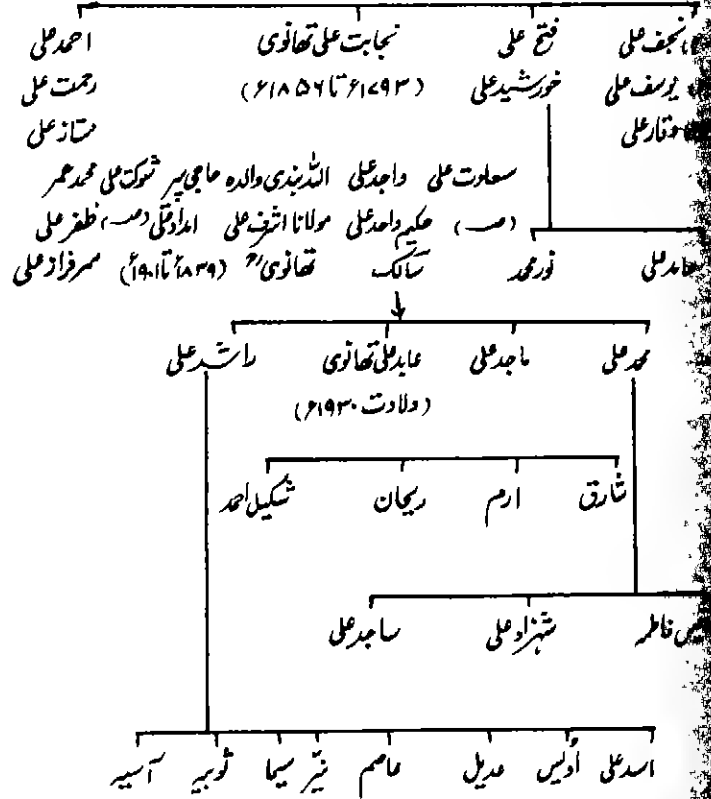 نجف علی فتح علی نجابت علی تھانوی احمد علی
یوسف علی خورشید علی (۱۷۹۳ء تا ۱۸۵۶ء) رحمت علی
وقار علی ممتاز علی
سعادت علی واجد علی اللہ بندی والدہ حاجی پیر شوکت علی محمد عمر
(صـ) حکیم واحد علی مولانا اشرف علی امداد علی (صـ) ظفر علی
عابد علی نور محمد سالک تھانویؒ (۱۸۳۹ء تا ۱۹۰۱ء) سرفراز علی
محمد علی ماجد علی عابد علی تھانوی راشد علی
(ولادت ۱۹۳۰ء)
شارق ارم ریحان شکیل احمد
فاطمہ شہزاد علی ساجد علی
اسد علی اُویس عدیل عاصم نیّر سیما ثوبیہ آسیہ